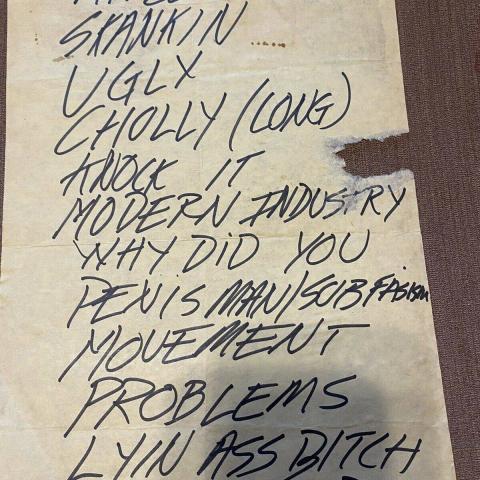 SKANKIN
UGLY
CHOLLY (LONG)
KNOCK IT
MODERN INDUSTRY
WHY DID YOU
PENIS MAN/SUBFASISM
MOVEMENT
PROBLEMS
LYIN ASS BITCH